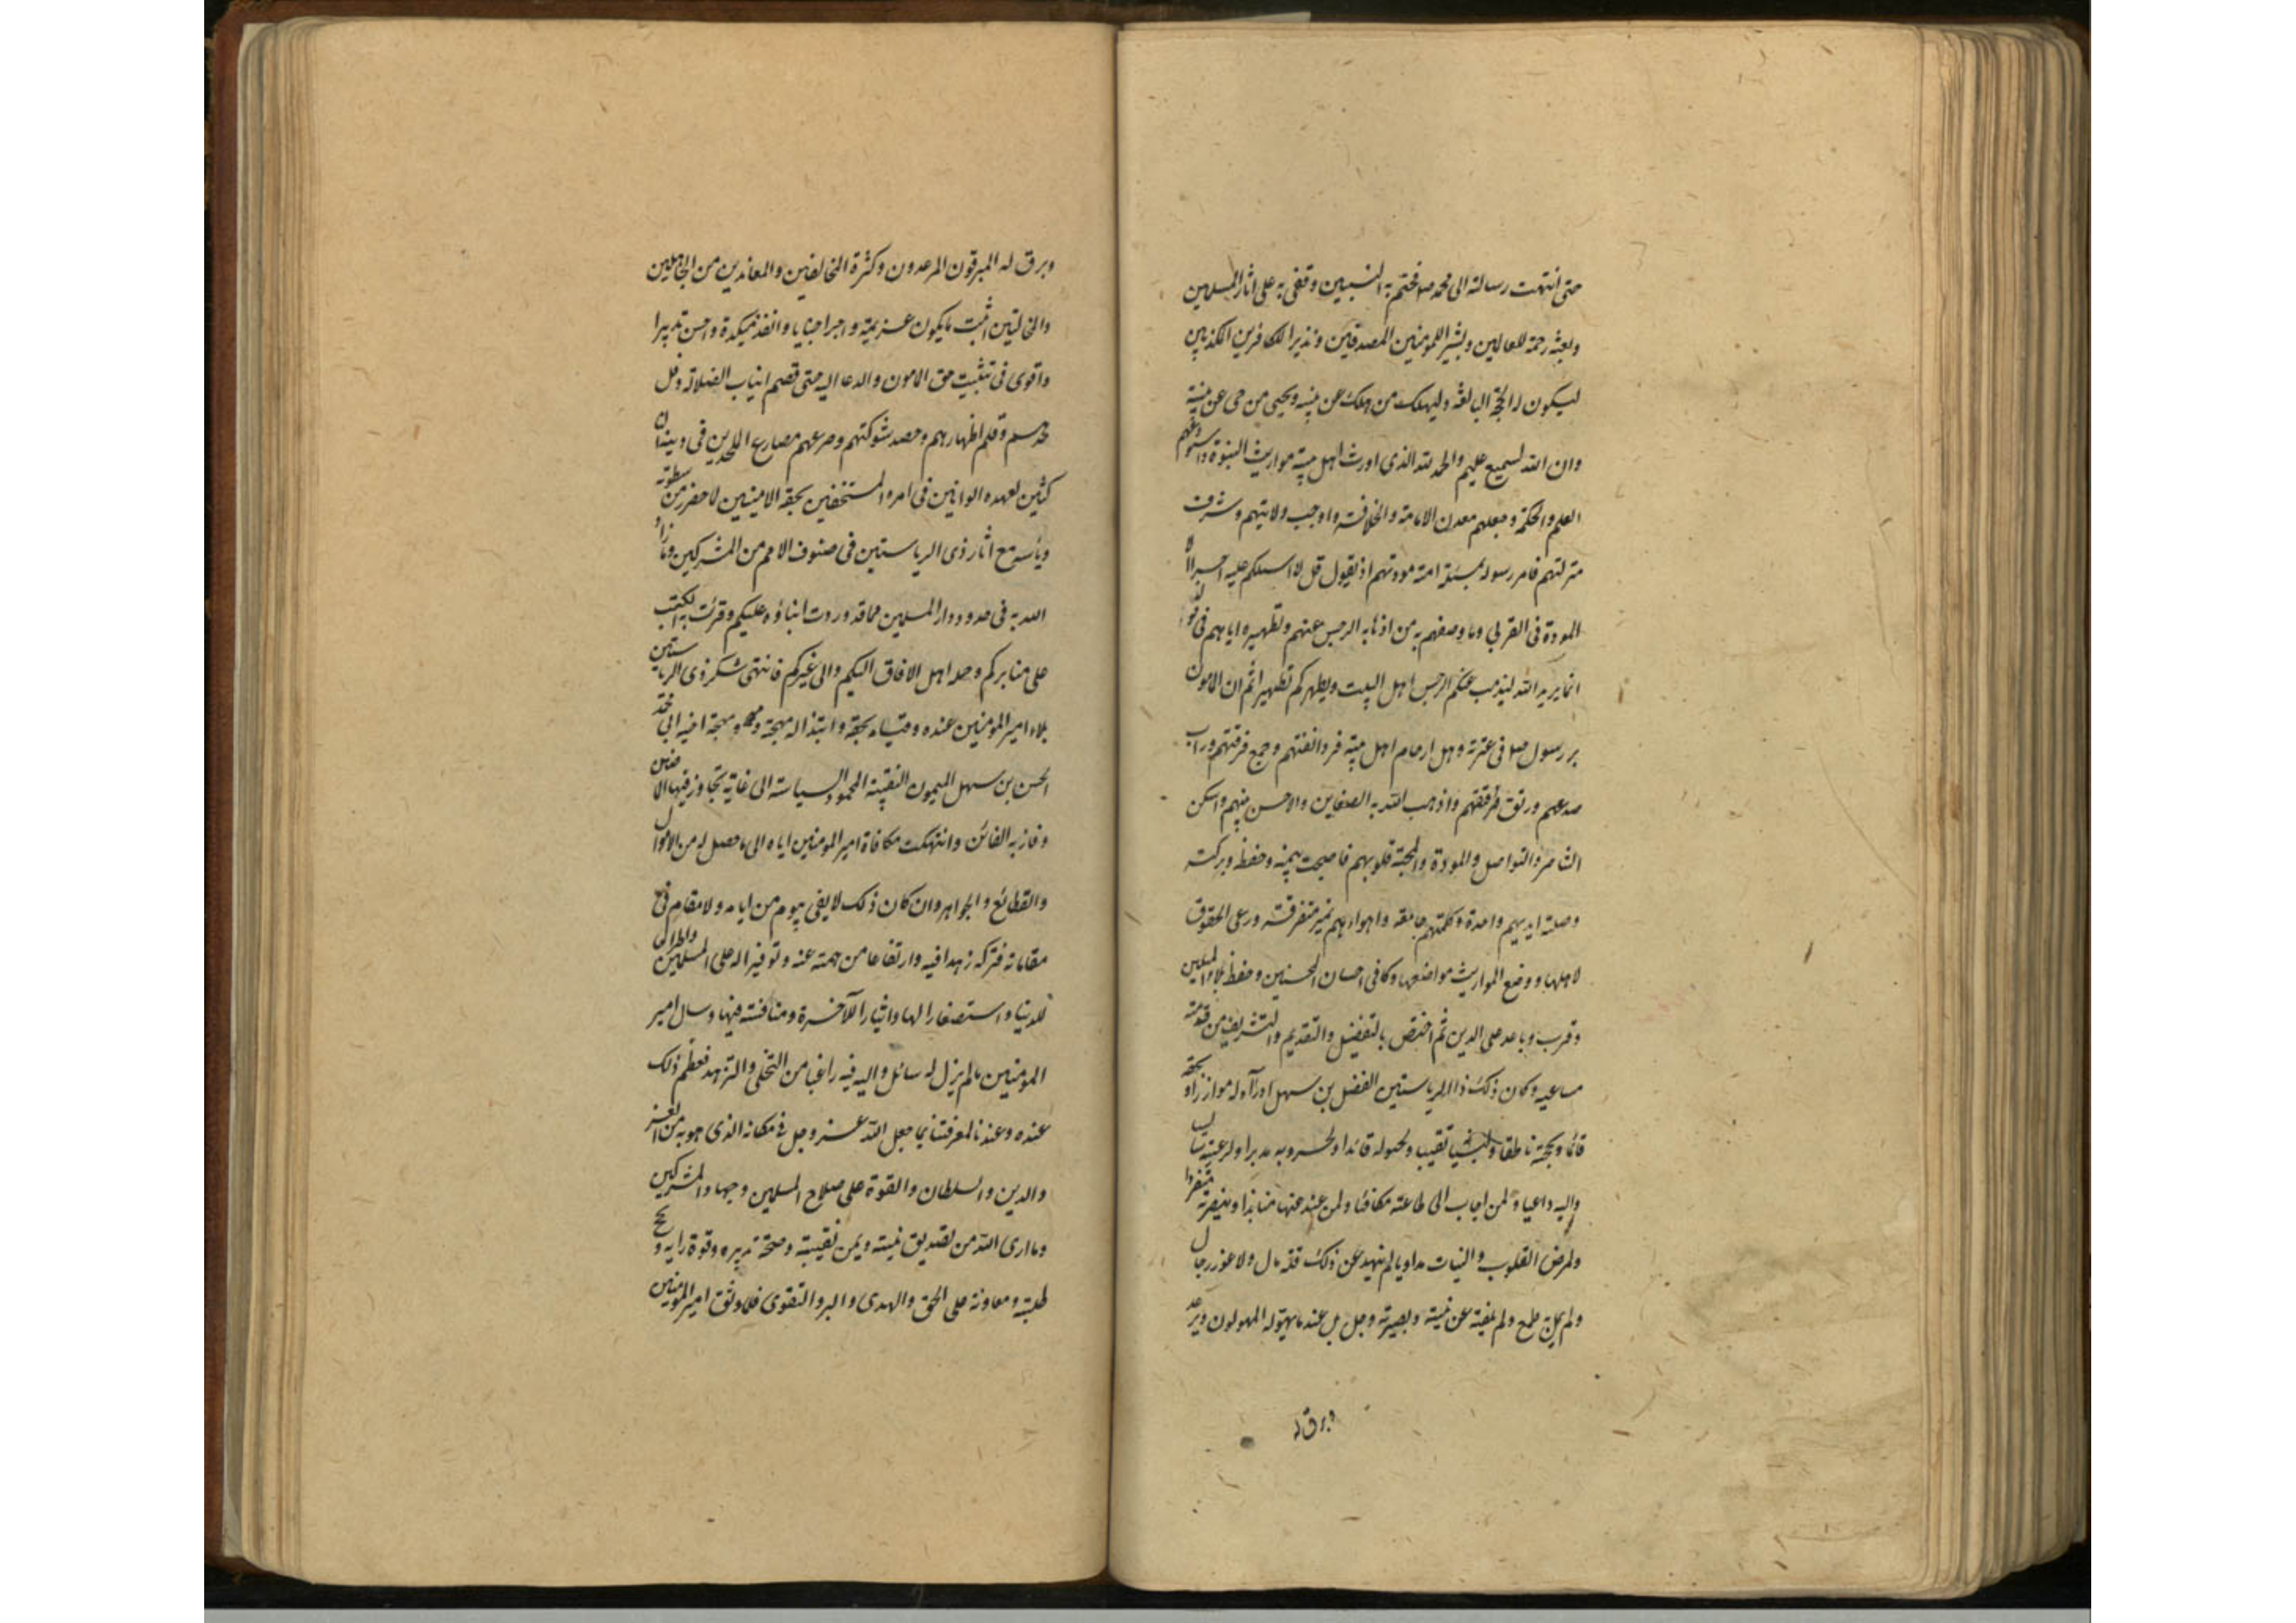 حتى انتهت رسالته الى محمد ص فختم به النبيين وقفى به على اثار المرسلين
وبعثه رحمة للعالمين وبشيرا للمؤمنين المصدقين ونذيرا للكافرين المكذبين
ليكون له الحجة البالغة وليهلك من هلك عن بينة ويحيى من حى عن بينة
وان الله لسميع عليم والحمد لله الذى اورث اهل بيته مواريث النبوة واستودعهم
العلم والحكمة وجعلهم معدن الامامة والخلافة واوجب ولايتهم وشرف
منزلتهم فامر رسوله بمسئلة امته مودتهم اذ يقول قل لا اسئلكم عليه اجرا الا
المودة فى القربى وما وصفهم به من اذهابه الرجس عنهم وتطهيره اياهم فى قوله
انما يريد الله ليذهب عنكم الرجس اهل البيت ويطهركم تطهيرا ثم ان المامون
بر رسول الله صلى فى عترته وصل ارحام اهل بيته فرد الفتهم وجمع فرقتهم وراب
صدعهم ورتق فتقهم واذهب الله به الضغاين والاحن بينهم واسكن
التناصر والتواصل والمودة والمحبة قلوبهم فاصبحت بيمنه وحفظه وبركته
وصلته ايديهم واحدة وكلمتهم جامعة واهواءهم غير متفرقة ورعى الحقوق
لاهلها ووضع المواريث مواضعها وكافى احسان المحسنين وحفظ بلاء المبلين
وقرب وباعد على الدين ثم اختص بالتفضيل والتقديم والتشريف من قدمته
مساعيه وكان ذلك ذا الرياستين الفضل بن سهل اذ رآه له موازرا وبحقه
قائما وبحجته ناطقا ولنقبائه نقيبا ولخيوله قائدا ولحروبه مدبرا ولرعيته سايسا
واليه داعيا ولمن اجاب الى طاعته مكافئا ولمن عند عنها منابذا وبنصرته متفردا
ولمرض القلوب والنيات مداويا لم ينهه عن ذلك قلة مال ولا عوز رجال
ولم يمل به طمع ولم يلفته عن نيته وبصيرته وجل بل عند ما يهوله المهولون ويرعد
وبرق له
وبرق له المبرقون المرعدون وكثرة المخالفين والمعاندين من المجاهدين
والمخالتين اثبت ما يكون عزيمة واجرا جنانا وانفذ مكيدة واحسن تدبيرا
واقوى فى تثبيت حق المامون والدعا اليه حتى قصم انياب الضلالة وفل
حدهم وقلم اظفارهم وحصد شوكتهم وصرعهم مصارع الملحدين فى دينه الناكثين
لعهده الوانين فى امره المستخفين بحقه الامينين لما حذر من سطوته
وبأسه مع اثار ذى الرياستين فى صنوف الامم من المشركين وما زاد
الله به فى حدود دار المسلمين مما قد وردت انباؤه عليكم وقرئت به الكتب
على منابركم وحمله اهل الافاق اليكم والى غيركم فانتهى شكر ذى الرياستين
بلاء امير المؤمنين عنده وقيامه بحقه وابتذاله مهجته ومهجة اخيه ابى محمد
الحسن بن سهل الميمون النقيبة المحمود السياسة الى غاية تجاوز فيها الماضين
وفاز بها الفائزين وانتهت مكافاة امير المؤمنين اياه الى ما حصل له من الاموال
والقطائع والجواهر وان كان ذلك لا يفى بيوم من ايامه ولا مقام من
مقاماته فتركه زهدا فيه وارتفاعا من همته عنه وتوفيرا له على المسلمين واطراحا
للدنيا واستصغارا لها وايثارا للآخرة ومنافسة فيها وسال امير
المؤمنين ما لم يزل له سائلا واليه فيه راغبا من التخلى والتزهد فعظم ذلك
عنده وعندنا لمعرفتنا بما جعل الله عز وجل فى مكانه الذى هو به من العز
والدين والسلطان والقوة على صلاح المسلمين وجهاد المشركين
وما ارى الله من تصديق نيته ويمن نقيبته وصحة تدبيره وقوة رايه ونجح
طلبته ومعاونته على الحق والهدى والبر والتقوى فلما وثق امير المؤمنين